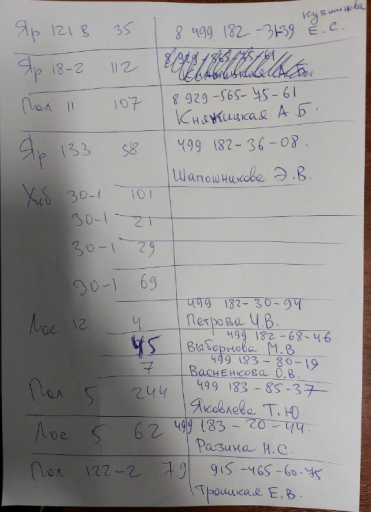 Кувшинова
Яр 121 В 35 8 499 182-31-39 Е.С.
Яр 18-2 112
Пол 11 107 8 929-565-75-61
Княжицкая А Б.
Яр 133 58 499 182-36-08.
Шапошникова Э.В.
Хиб 30-1 101
30-1 21
30-1 29
30-1 69
499 182-30-94
Лос 12 4 Петрова И.В.
499 182-68-46
45 Выборнова М.В
499 183-80-19
7 Васненкова О.В.
Пол 5 244 499 183-85-37
Яковлева Т.Ю
Лос 5 62 499 183-20-44.
Разина Н.С.
Пол 122-2 79 915-465-60-75
Троицкая Е.В.